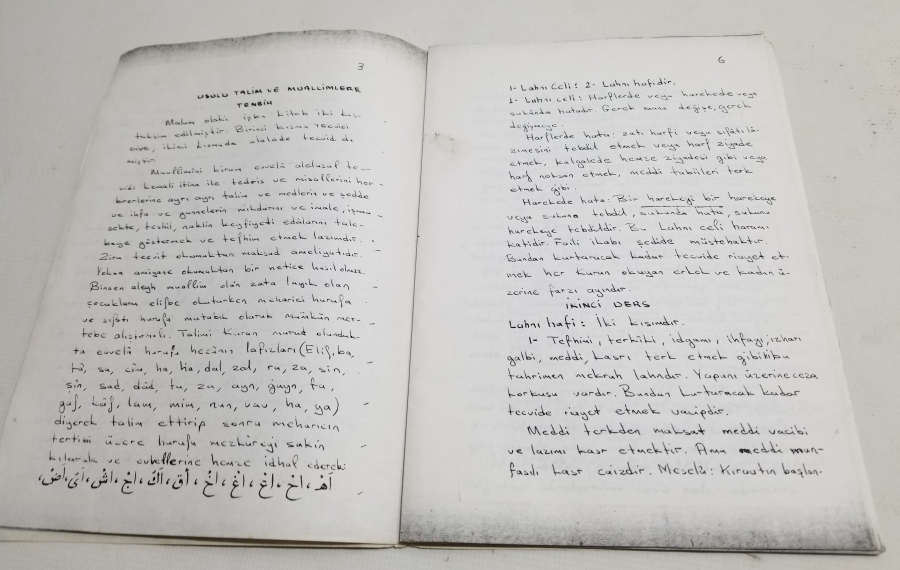 3
USULU TALİM VE MUALLİMLERE
TENBİH
Malum olaki işbu kitab iki kıs.
taksim edilmiştir. Birinci kısmı Tecvidi
ikinci kısmında alalade tecvid
mıştır
Muallimini kiram evvelâ alelusul te
vidi kemali itina ile tedris ve misallerini her
birerlerine ayrı ayrı talim ve medlerin ve şedde
ve ihfa ve gunnelerin mikdarını ve imale, işmu
sekte, teshil, naklin keyfiyeti edâlarını tale-
beye göstermek ve tefhim etmek lazımdır.
Zira tecvit okumaktan maksud ameliyatıdır.
Yoksa amiyane okumaktan bir netice hasıl olmaz.
Binaen aleyh muallim olan zata layık olan
çocukların elifbe okuturken meharici hurufa
ve sıfatı hurufa mutabık olarak mümkün mer-
tebe alıştırmalı. Talimi Kuran murad olunduk
ta evvelâ hurufu hecânın lafızları (Elif, ba,
tâ, sa, cim, ha, ha, dal, zal, ra, za, sin,
şin, sad, dâd, ta, za, ayn, gayn, fa,
gaf, kâf, lam, mim, nun, vav, ha, ya)
diyerek talim ettirip sonra meharicin
tertibi üzere hurufu mezkûreyi sakin
kılarak ve evvellerine hemze idhal ederek
اَهْ ، اَحْ ، اَعْ ، اَغْ ، اَخْ ، اَقْ ، اَكْ ، اَجْ ، اَشْ ، اَىْ ، اَضْ ،
6
1- Lahnı Celi: 2- Lahnı hafidir.
1- Lahnı celi: Harflerde veya harekede veya
sukûnda hatadır. Gerek mana değişe, gerek
değişmeye.
Harflerde hata: zatı harfi veya sıfâtı lâ-
zımesini tebdil etmek veya harf ziyade
etmek, kalgalede hemze ziyadesi gibi veya
harf noksan etmek, meddi tabiileri terk
etmek gibi.
Harekede hata: Bir harekeyi bir harekeye
veya sukuna tebdil, sukunda hata, sukunu
harekeye tebdildir. Bu Lahnı celi haramı
katidir. Faili ikabı şedide müstehaktır.
Bundan kurtaracak kadar tecvide riayet et-
mek her Kuran okuyan erkek ve kadın ü-
zerine farzı ayındır.
İKİNCİ DERS
Lahnı hafi: İki kısımdır.
1- Tefhimi, terkiki, idgamı, ihfayı, izharı
galbi, meddi, kasrı terk etmek gibi kibu
tahrimen mekruh lahndır. Yapanı üzerine ceza
korkusu vardır. Bundan kurtaracak kadar
tecvide riayet etmek vacipdir.
Meddi terkden maksat meddi vacibi
ve lazımı kasr etmektir. Ama meddi mun-
fasılı kasr caizdir. Meselâ: Kıraatın başlan-